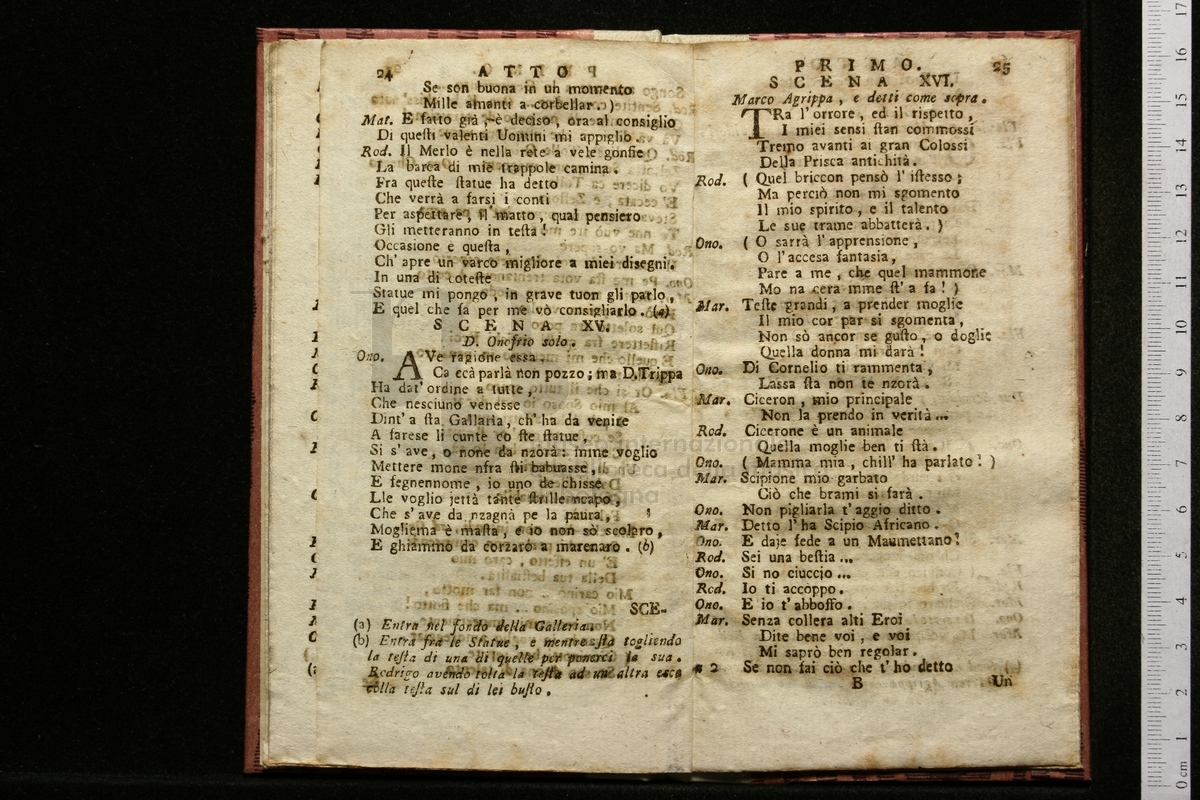 24 ATTO
Se son buona in un momento
Mille amanti a corbellar. )
Mat. E fatto già, è deciso, ora al consiglio
Di questi valenti Uomini mi appiglio.
Rod. Il Merlo è nella rete a vele gonfie
La barca di mie trappole camina.
Fra queste statue ha detto
Che verrà a farsi i conti
Per aspettare, il matto, qual pensiero
Gli metteranno in testa!
Occasione è questa,
Ch' apre un varco migliore a miei disegni.
In una di coteste
Statue mi pongo, in grave tuon gli parlo,
E quel che fa per me vò consigliarlo. (a)
SCENA XV.
D. Onofrio solo.
Ono. AVe ragione essa.
Ca ccà parlà non pozzo; ma D. Trippa
Ha dat' ordine a tutte,
Che nesciuno venesse
Dint' a sta Gallaria, ch' ha da venire
A farese li cunte co ste statue,
Si s' ave, o none da nzorà: mme voglio
Mettere mone nfra sti babuasse,
E fegnennome, io uno de chisse
Lle voglio jettà tante strille ncapo,
Che s' ave da nzagnà pe la paura,
Mogliema è masta, e io non sò scolaro,
E ghiammo da corzaro a marenaro. (b)
SCE-
(a) Entra nel fondo della Galleria.
(b) Entra fra le Statue, e mentre sta togliendo
la testa di una di quelle per ponerci la sua.
Rodrigo avendo tolta la testa ad un' altra esce
colla testa sul di lei busto.
PRIMO. 25
SCENA XVI.
Marco Agrippa, e detti come sopra.
TRa l'orrore, ed il rispetto,
I miei sensi stan commossi
Tremo avanti ai gran Colossi
Della Prisca antichità.
Rod. ( Quel briccon pensò l' istesso;
Ma perciò non mi sgomento
Il mio spirito, e il talento
Le sue trame abbatterà. )
Ono. ( O sarrà l'apprensione,
O l'accesa fantasia,
Pare a me, che quel mammone
Mo na cera mme st' a fa! )
Mar. Teste grandi, a prender moglie
Il mio cor par si sgomenta,
Non sò ancor se gusto, o doglie
Quella donna mi darà!
Ono. Di Cornelio ti rammenta,
Lassa sta non te nzorà.
Mar. Ciceron, mio principale
Non la prendo in verità...
Rod. Cicerone è un animale
Quella moglie ben ti stà.
Ono. ( Mamma mia, chill' ha parlato! )
Mar. Scipione mio garbato
Ciò che brami si farà.
Ono. Non pigliarla t' aggio ditto.
Mar. Detto l' ha Scipio Africano.
Ono. E daje fede a un Maumettano!
Rod. Sei una bestia...
Ono. Si no ciuccio...
Rod. Io ti accoppo.
Ono. E io t' abbosso.
Mar. Senza collera alti Eroi
Dite bene voi, e voi
Mi saprò ben regolar.
a 2 Se non fai ciò che t' ho detto
B Un